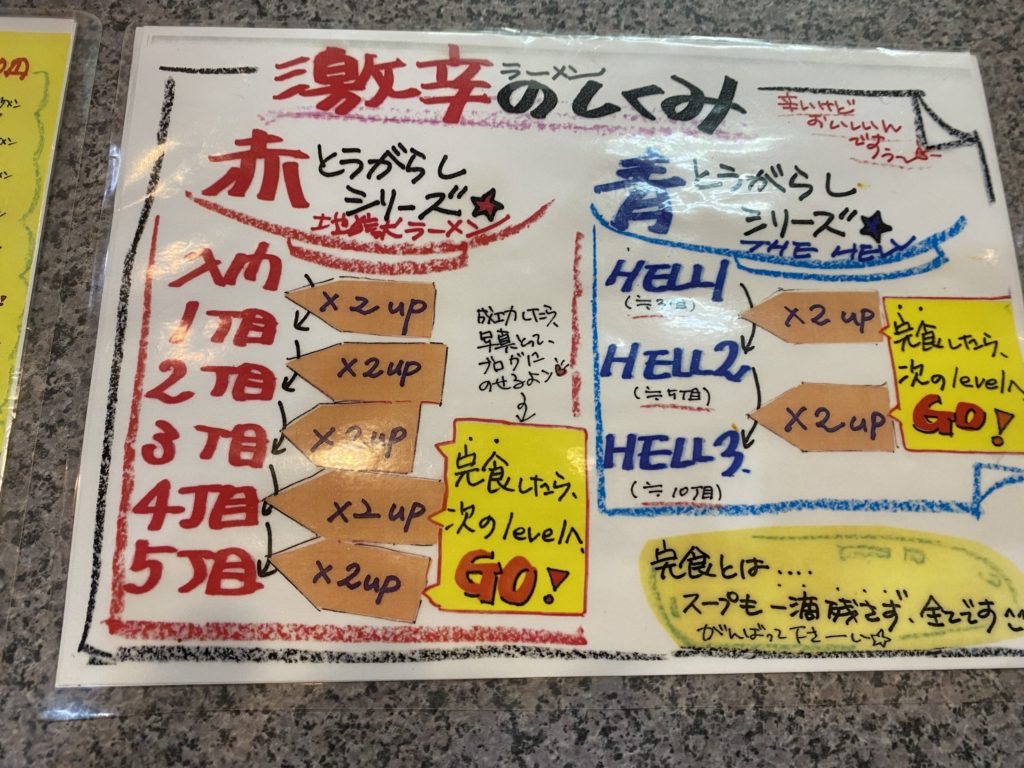 激辛ラーメンのしくみ
辛いけど
おいしいん
ですぅ〜
赤とうがらし
シリーズ★
地獄ラーメン
入門
1丁目
2丁目
3丁目
4丁目
5丁目
×2up
×2up
×2up
×2up
×2up
成功したら、
写真とって、
ブログに
のせるよン
完食したら、
次のlevelへ
GO!
青とうがらし
シリーズ★
THE HELL
HELL1
(≒3丁目)
HELL2
(≒5丁目)
HELL3
(≒10丁目)
×2up
×2up
完食したら、
次のlevelへ
GO!
完食とは....
スープも一滴残さず、全てです
がんばって下さーい☆